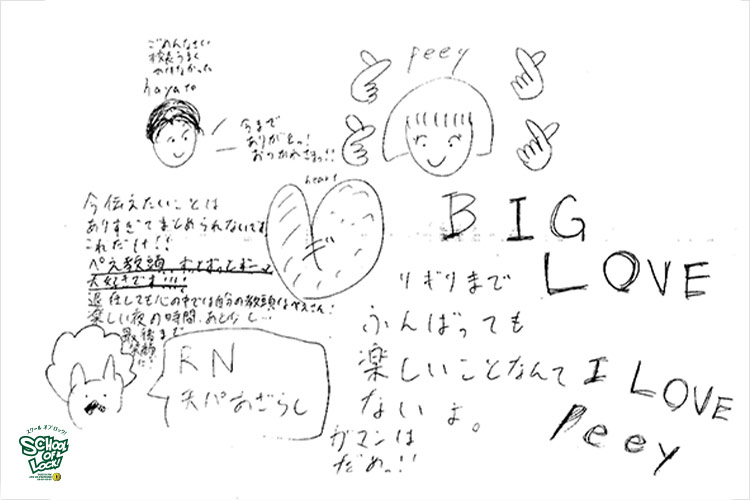 ごめんなさい
校長うまく
かけなかった
hayato
今まで
ありがとっ!
おつかれさまっ!!
peey
heart
ギ
BIG
LOVE
今伝えたいことは
ありすぎてまとめられないです
これだけ!!
ぺえ教頭
大好きです!!!
退任しても心の中では自分の教頭はぺえさん!
楽しい夜の時間、あと少し…
最後まで
RN
天パあざらし
りぎりまで
ふんばっても
楽しいことなんて
ないよ。
ガマンは
だめっ!!
I LOVE
Peey
スクール オブ ロック!
SCHOOL
OF
LOCK!